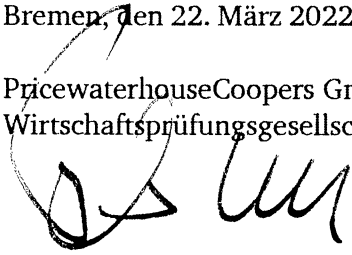 Bremen, den 22. März 2022
PricewaterhouseCoopers Gr
Wirtschaftsprüfungsgesellsc